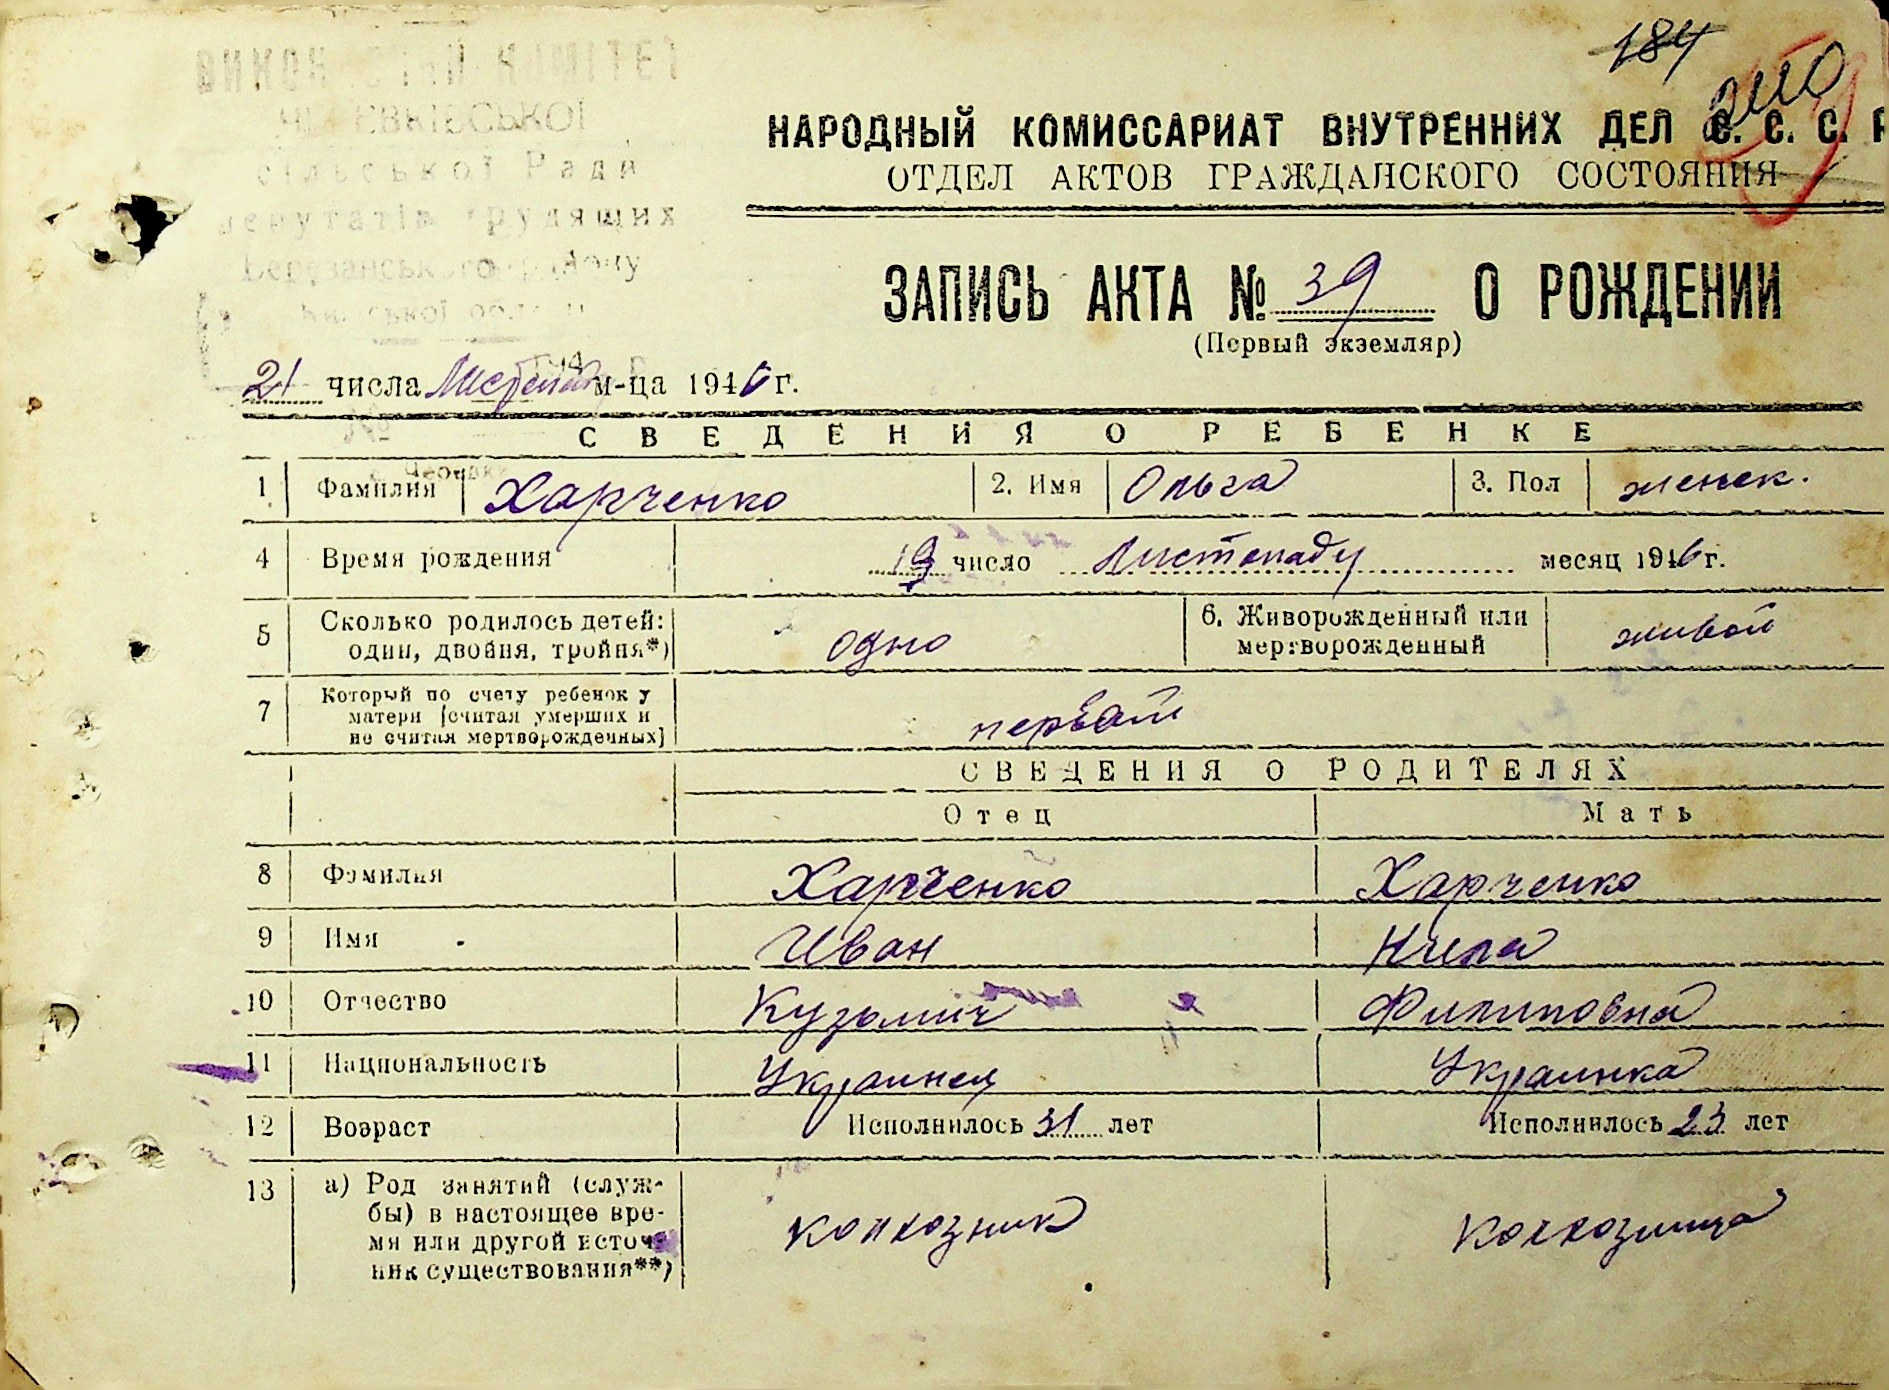 184
ВИКОН КОМІТЕТ
сільської Ради
депутатів трудящих
Березанського району
НАРОДНЫЙ КОМИССАРИАТ ВНУТРЕННИХ ДЕЛ С. С. С. Р
ОТДЕЛ АКТОВ ГРАЖДАНСКОГО СОСТОЯНИЯ
ЗАПИСЬ АКТА № 39 О РОЖДЕНИИ
(Первый экземляр)
21 числа Листопада м-ца 1946 г.
СВЕДЕНИЯ О РЕБЕНКЕ
1 Фамилия Харченко 2. Имя Ольга 3. Пол женск.
4 Время рождения 19 число Листопаду месяц 1946 г.
5 Сколько родилось детей: одно 6. Живорожденный или живой
один, двойня, тройня*) мертворожденный
7 Который по счету ребенок у
матери [считая умерших и первай
не считая мертворожденных]
СВЕДЕНИЯ О РОДИТЕЛЯХ
Отец Мать
8 Фамилия Харченко Харченко
9 Имя Иван Нила
10 Отчество Кузьмич Филиповна
11 Национальность Украинец Украинка
12 Возраст Исполнилось 31 лет Исполнилось 23 лет
13 а) Род занятий (служ-
бы) в настоящее вре- колхозник колхозница
мя или другой источ-
ник существования**)